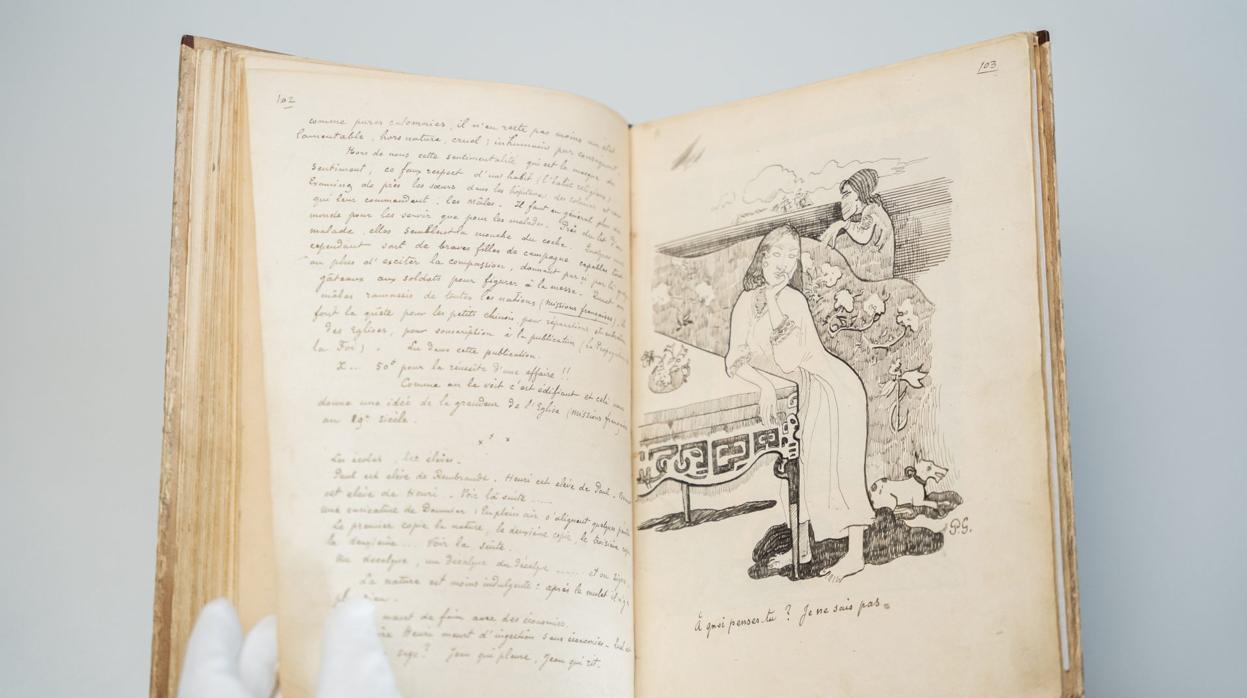 102
comme pures calomnies, il n'en reste pas moins un état
lamentable, hors nature, cruel ; inhumain par conséquent.
Hors de nous cette sentimentalité qui est le masque du
sentiment, ce faux respect d'un habit (l'habit religieux)
Examinez de près les sœurs dans les hôpitaux, des
qui leur commandent, les Mâles. Il faut en général plus de
monde pour les servir que pour les malades. Près du lit d'un
malade, elles semblent la mouche du coche.
cependant sont de braves filles de campagne capables tout
au plus d'exciter la compassion, donnant par ci par là quelques
gâteaux aux soldats pour figurer à la messe. Quant aux
mâles ramassés de toutes les nations (missions françaises), ils
font la quête pour les petits chinois, pour réparations
des Eglises, pour souscription à la publication (la Propagation de
la Foi). Lu dans cette publication.
X... 50f pour la réussite d'une affaire !!
Comme on le voit c'est édifiant et cela nous
donne une idée de la grandeur de l'Eglise (missions françaises)
au 19e siècle.
x x x
Un écolier, les élèves.
Paul est élève de Rembrandt. Henri est élève de Paul.
est élève de Henri. Voir la suite ......
une caricature de Daumier : En plein air s'alignent quelques peintres
Le premier copie la nature, le deuxième copie, le troisième copie
le deuxième ... Voir la suite.
Un décalque, un décalque du décalque ...... et on signe.
La nature est moins indulgente : après le mulet il n'y a
plus rien.
meurt de faim avec des économies.
Henri meurt d'ingestion sans économies.
sage ? Jean qui pleure, Jean qui rit.
103
P.G.
À quoi penses-tu ? Je ne sais pas